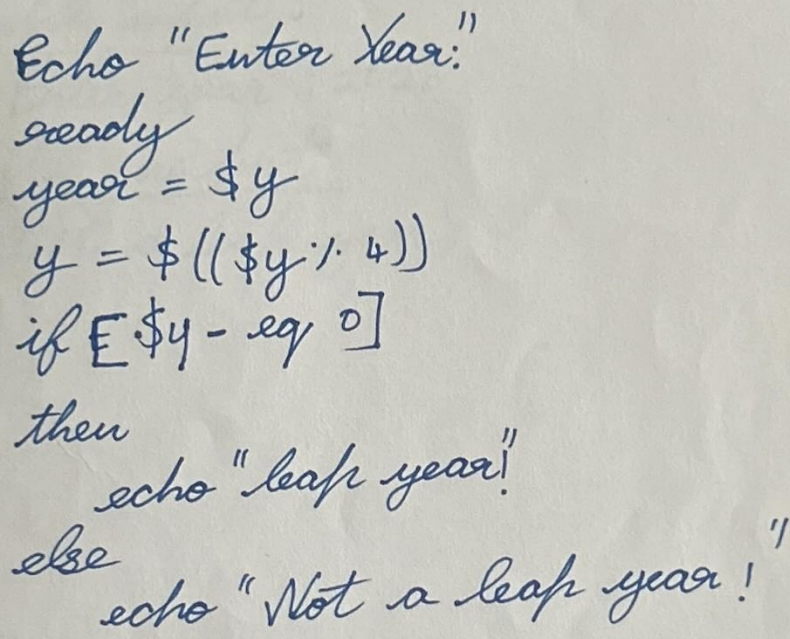 Echo "Enter Year:"
ready
year = $y
y = $(($y % 4))
if [ $y - eq 0]
then
echo "leap year!"
else
echo "Not a leap year!"